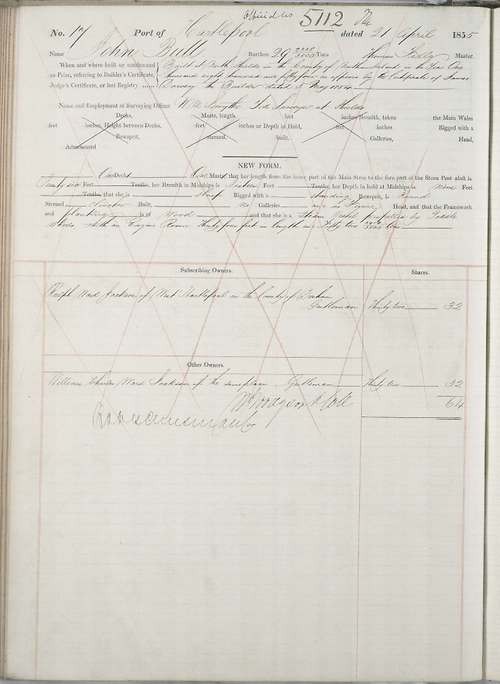 Official No 5112
No. 17 Port of Hartlepool dated 21 April 1855
Name John Bull Burthen 29 Tons Thomas Master.
When and where built or condemned Built at North Shields in the County of Northumberland in the Year One
as Prize, referring to Builder's Certificate, thousand eight hundred and fifty four as appears by the Certificate of James
Judge's Certificate, or last Registry the Builder dated 8 May 1854
Name and Employment of Surveying Officer W. Tide Surveyor at Shields
Decks, Masts, length feet inches Breadth, taken the Main Wales
feet inches, Height between Decks, feet inches or Depth in Hold, feet inches Rigged with a
Bowsprit, sterned, built, Galleries, Head,
Admeasured
NEW FORM.
One Deck One Mast that her length from the inner part of the Main Stem to the fore part of the Stern Post aloft is
Feet Tenths, her Breadth in Midships is Feet Tenths, her Depth in hold at Midships is Nine Feet
Tenths that she is Sloop Rigged with a standing Bowsprit, is Round
Sterned Built, no Galleries and no Figure Head, and that the Framework
and planking is of Wood and that she is a Steam Vessel propelled by Paddle
Wheels with an Engine Room thirty four feet in length and fifty two
Subscribing Owners. Shares.
Ralph Ward Jackson of West Hartlepool in the County of Durham
Gentleman Thirty two 32
Other Owners.
William Charles Ward Jackson of the same place Gentleman Thirty two 32
64